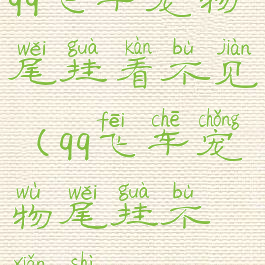 qq飞车宠物
wěi guà kàn bù jiàn
尾挂看不见
fēi chē chǒng
（qq飞车宠
wù wěi guà bù
物尾挂不
xiǎn shì